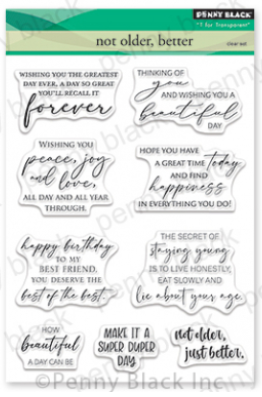 PENNY BLACK
"I Go Transparent"
not older, better
clear set
WISHING YOU THE GREATEST
DAY EVER, A DAY SO GREAT
YOU'LL RECALL IT
forever
THINKING OF
you
AND WISHING YOU A
beautiful
DAY
WISHING YOU
peace, joy
and love,
ALL DAY AND ALL YEAR
THROUGH.
HOPE YOU HAVE
A GREAT TIME today
AND FIND
happiness
IN EVERYTHING YOU DO!
happy birthday
TO MY
BEST FRIEND,
YOU DESERVE THE
best of the best.
THE SECRET OF
staying young
IS TO LIVE HONESTLY,
EAT SLOWLY AND
lie about your age.
HOW
beautiful
A DAY CAN BE
MAKE IT A
SUPER DUPER
DAY
not older,
just better.
©Penny Black Inc.